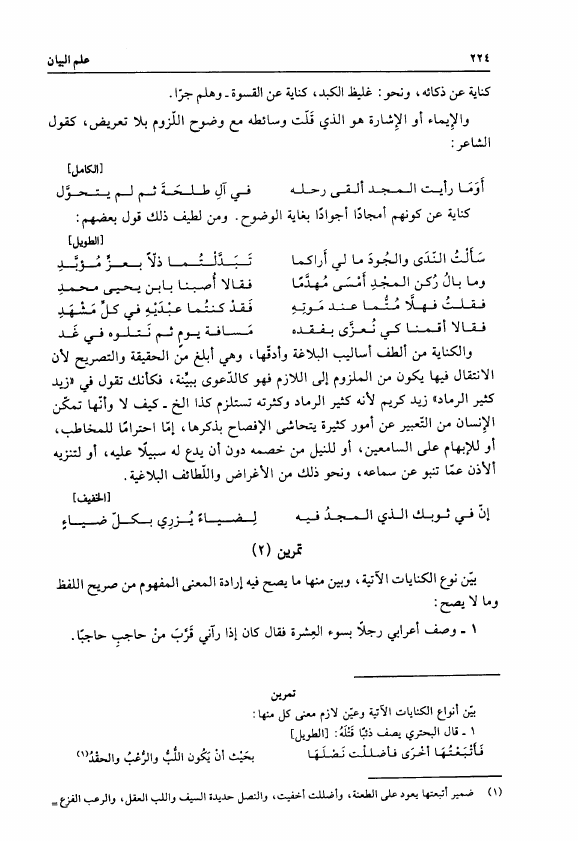 ٢٢٤ علم البيان
كناية عن ذكائه، ونحو: غليظ الكبد، كناية عن القسوة ـ وهلم جرّا.
والإيماء أو الإشارة هو الذي قَلّت وسائطه مع وضوح اللّزوم بلا تعريض، كقول
الشاعر:
[الكامل]
أَوَمَا رأيت المجد ألقى رحله في آلِ طلحَةَ ثم لم يتحوَّل
كناية عن كونهم أمجادًا أجوادًا بغاية الوضوح. ومن لطيف ذلك قول بعضهم:
[الطويل]
سَألْتُ النّدَى والجُودَ ما لي أراكما تَبَدَّلْتُما ذلاً بعزٍّ مُؤبَّدِ
وما بالُ رُكن المجْدِ أمْسَى مُهدَّمًا فقالا أُصبنا بابن يحيى محمدِ
فقلتُ فهلاَّ مُتُّما عند مَوتِهِ فَقدْ كنتُما عبدَيْهِ في كلِّ مَشْهَدِ
فقالا أقمنا كي نُعزَّى بفقده مَسافة يومٍ ثم نَتلوه في غَد
والكناية من ألطف أساليب البلاغة وأدقّها، وهي أبلغ من الحقيقة والتصريح لأن
الانتقال فيها يكون من الملزوم إلى اللازم فهو كالدّعوى ببيِّنة، فكأنك تقول في «زيد
كثير الرماد» زيد كريم لأنه كثير الرماد وكثرته تستلزم كذا الخ ـ كيف لا وأنّها تمكّن
الإنسان من التّعبير عن أمور كثيرة يتحاشى الإفصاح بذكرها، إمّا احترامًا للمخاطب،
أو للإبهام على السامعين، أو للنيل من خصمه دون أن يدع له سبيلًا عليه، أو لتنزيه
الأذن عمّا تنبو عن سماعه، ونحو ذلك من الأغراض واللّطائف البلاغية.
[الخفيف]
إنّ في ثوبك الذي المجدُ فيه لضياءً يُزرِي بكلّ ضياءِ
تمرين (٢)
بيّن نوع الكنايات الآتية، وبين منها ما يصح فيه إرادة المعنى المفهوم من صريح اللفظ
وما لا يصح:
١ ـ وصف أعرابي رجلًا بسوء العِشرة فقال كان إذا رآني قَرَّبَ منْ حاجبِ حاجبًا.
تمرين
بيّن أنواع الكنايات الآتية وعيّن لازم معنى كل منها:
١ ـ قال البحتري يصف ذئبًا قَتْلَهُ: [الطويل]
فَأتْبَعْتُهَا أخرَى فأضللْت نَصْلَهَا بحَيْث أنْ يَكُون اللُّبُّ والرُّعْبُ والحقْدُ(١)
(١) ضمير أتبعتها يعود على الطعنة، وأضللت أخفيت، والنصل حديدة السيف واللب العقل، والرعب الفزع =